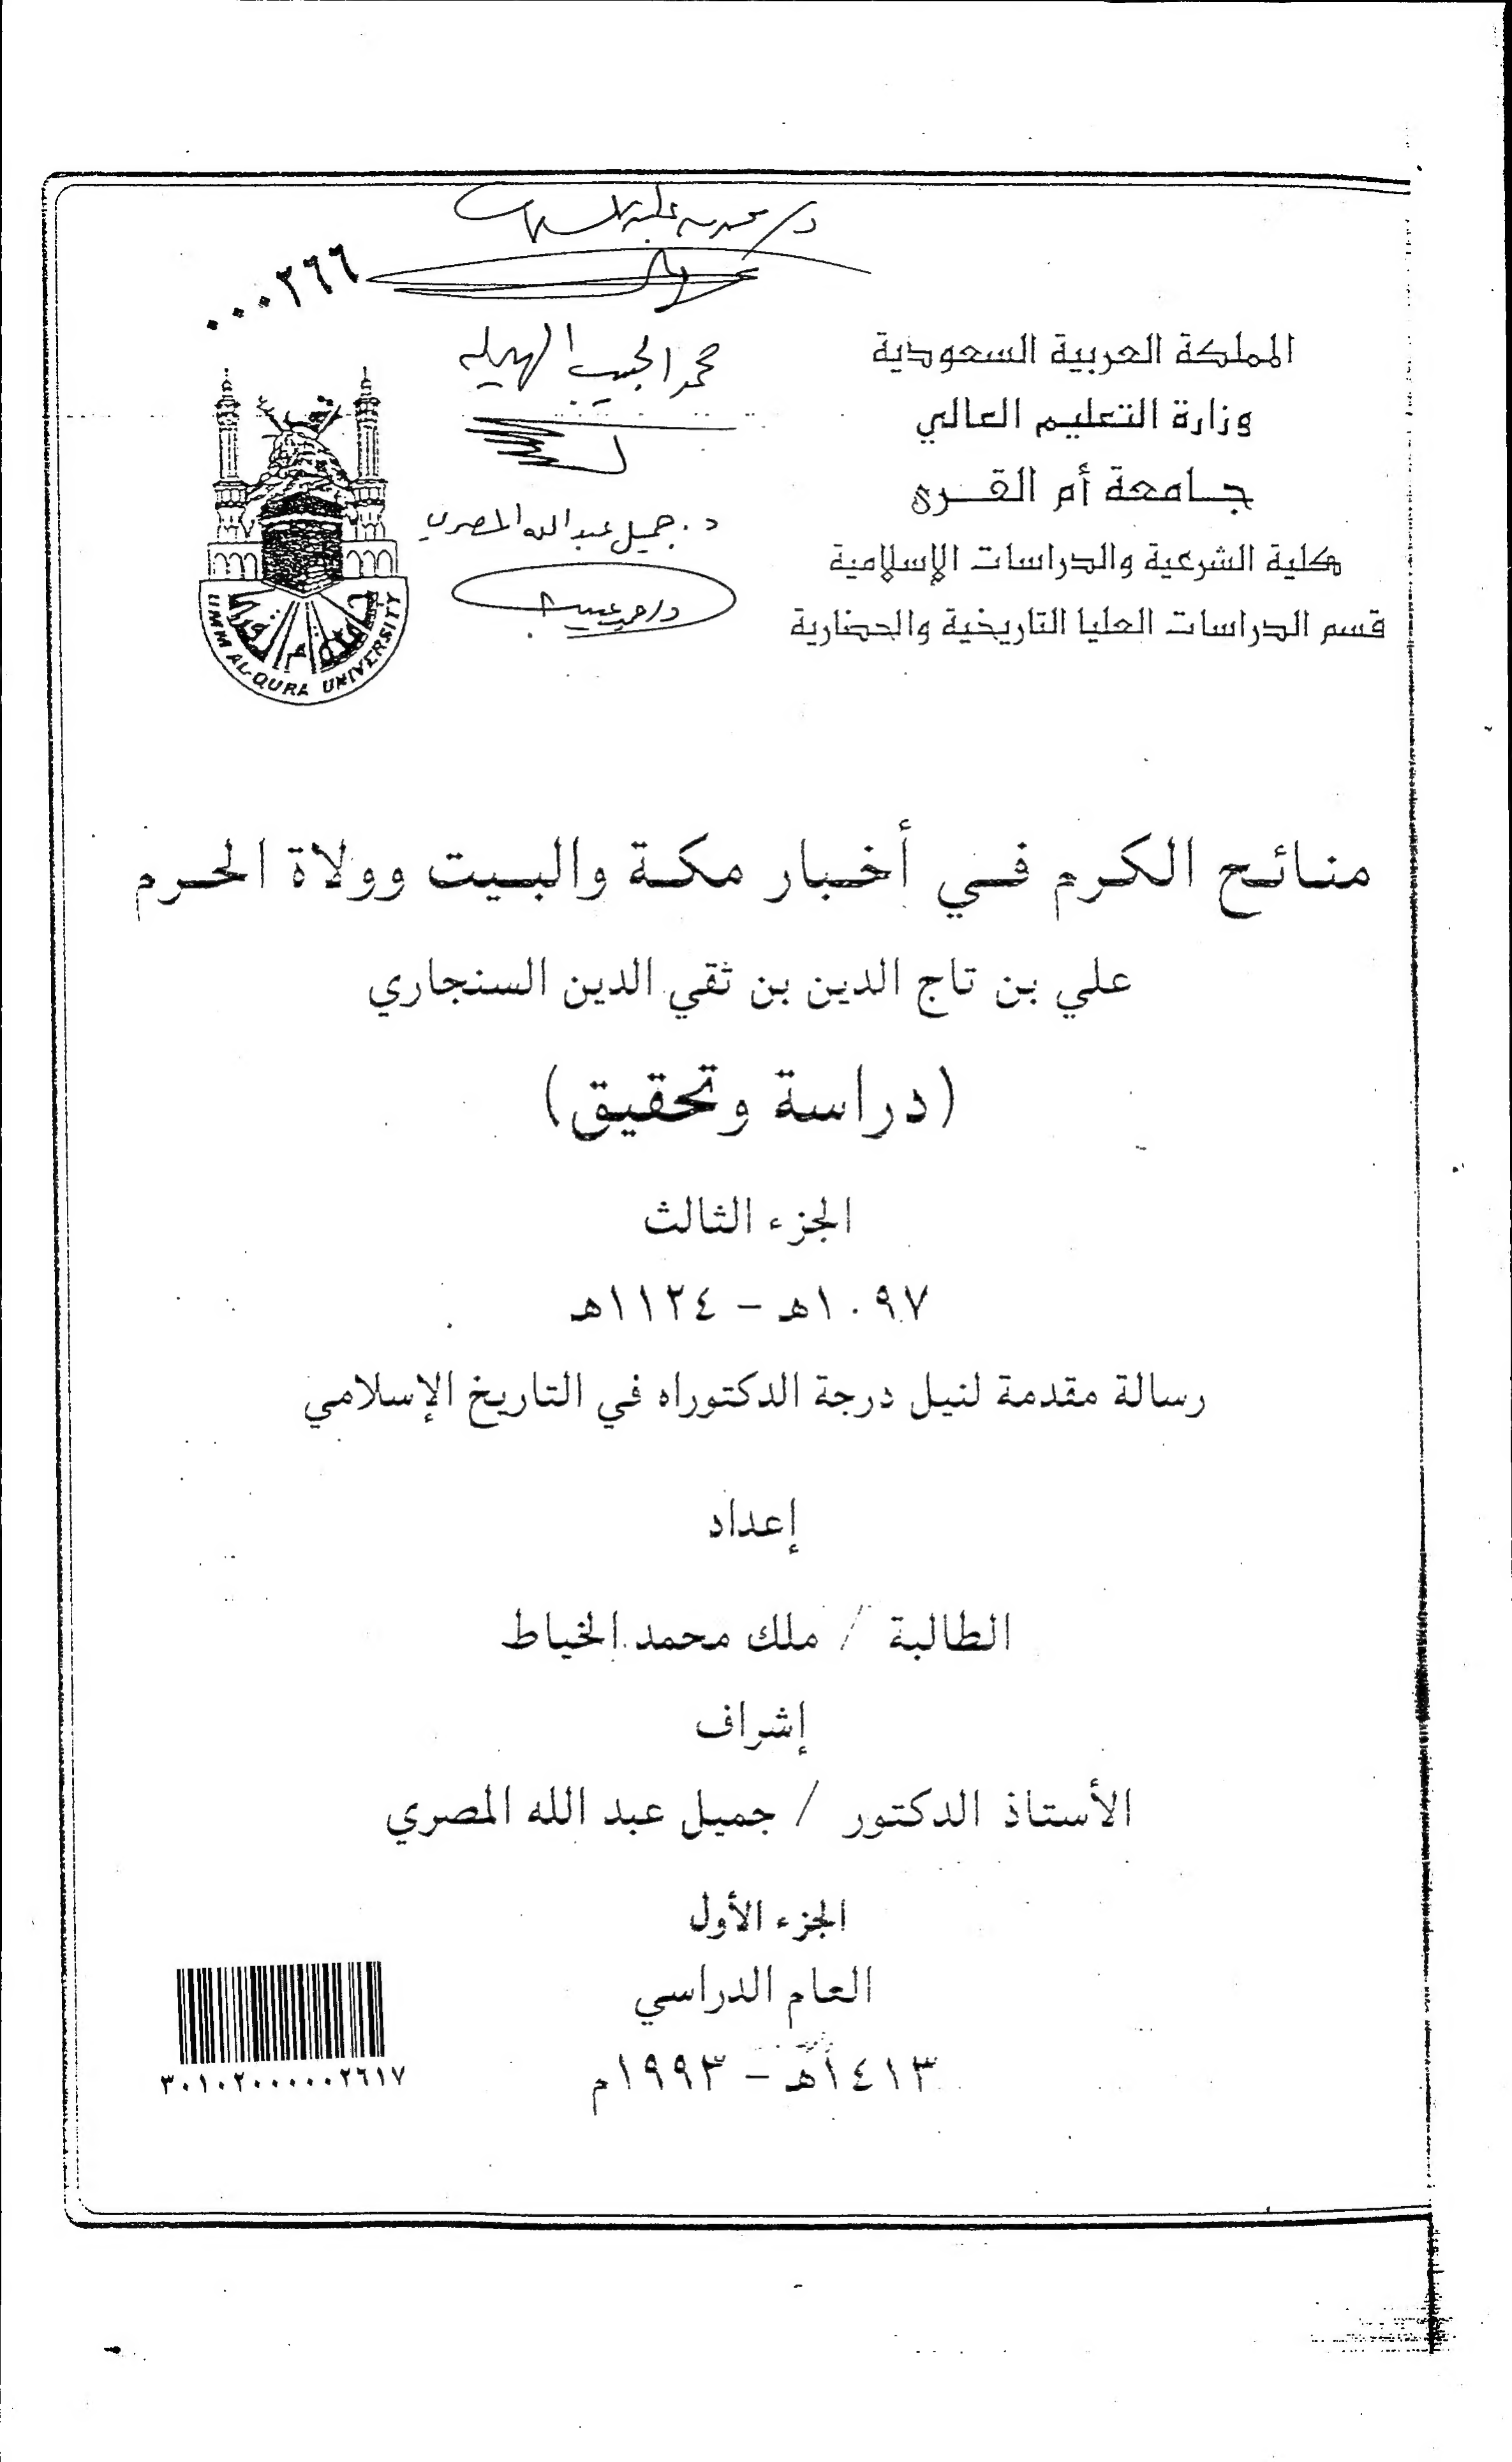 ٠٠٠٢٦٦
المملكة العربية السعودية
وزارة التعليم العالي
جامعة أم القرى
كلية الشرعية والدراسات الإسلامية
قسم الدراسات العليا التاريخية والحضارية
محمد الحبيب الهيله
د. جميل عبد الله المصري
جامعة أم القرى
UMM AL-QURA UNIVERSITY
منائح الكرم في أخبار مكة والبيت وولاة الحرم
علي بن تاج الدين بن تقي الدين السنجاري
(دراسة وتحقيق)
الجزء الثالث
١٠٩٧هـ - ١١٢٤هـ
رسالة مقدمة لنيل درجة الدكتوراه في التاريخ الإسلامي
إعداد
الطالبة / ملك محمد الخياط
إشراف
الأستاذ الدكتور / جميل عبد الله المصري
الجزء الأول
العام الدراسي
١٤١٣هـ - ١٩٩٣م
٣٠١٠٢٠٠٠٠٠٠٢٦١٧